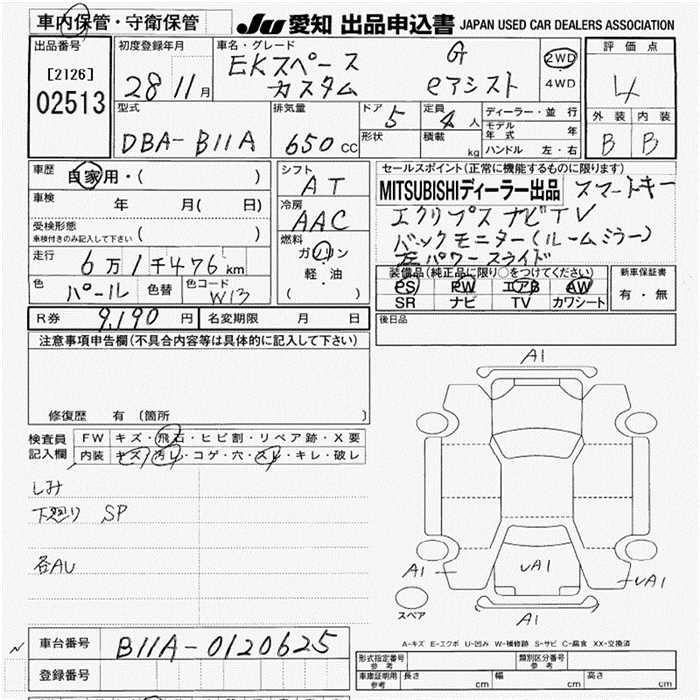 車内保管・守衛保管
JU 愛知 出品申込書 JAPAN USED CAR DEALERS ASSOCIATION
出品番号
[2126]
02513
初度登録年月
28 11月
車名・グレード
EKスペース G
カスタム eアシスト
2WD
・
4WD
評価点
4
外装 内装
B B
型式
DBA-B11A
排気量
650 cc
ドア 5
形状
定員 4 人
積載 kg
ディーラー・並 行
モデル年式 年
ハンドル 左・右
車歴 自家用・( )
車検 年 月( 日)
受検形態
車検付きのみ記入して下さい ( )
走行 6万1千476km
色 パール 色替 色コード W13
シフト
AT
冷房
AAC
燃料
ガソリン
軽・油
( )
セールスポイント(正常に機能するものに限ります)
MITSUBISHIディーラー出品 スマートキー
エクリプス ナビTV
バックモニター(ルームミラー)
左パワースライド
装備品(純正品に限り○をつけてください)
PS PW エアB AW
SR ナビ TV カワシート
新車保証書
有・無
R券 9,190 円 名変期限 月 日
後日品
注意事項申告欄(不具合内容等は具体的に記入して下さい)
修復歴 有〔箇所 〕
検査員
記入欄
FW キズ・飛石・ヒビ割・リペア跡・X要
内装 キズ・汚レ・コゲ・穴・スレ・キレ・破レ
しみ
下廻り SP
各AU
A1
A1
UA1
UA1
A1
スペア
A-キズ E-エクボ U-凹み W-補修跡 S-サビ C-腐食 XX-交換済
車台番号 B11A-0120625
登録番号
形式指定番号
参考
類別区分番号
参考
車庫証明用
参考
長さ cm 幅 cm 高さ cm